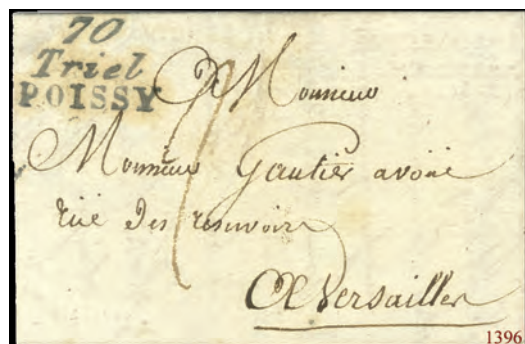 70
Triel
POISSY
A Monsieur
Monsieur Gautier avoué
rue des reservoirs
A Versailles
1396